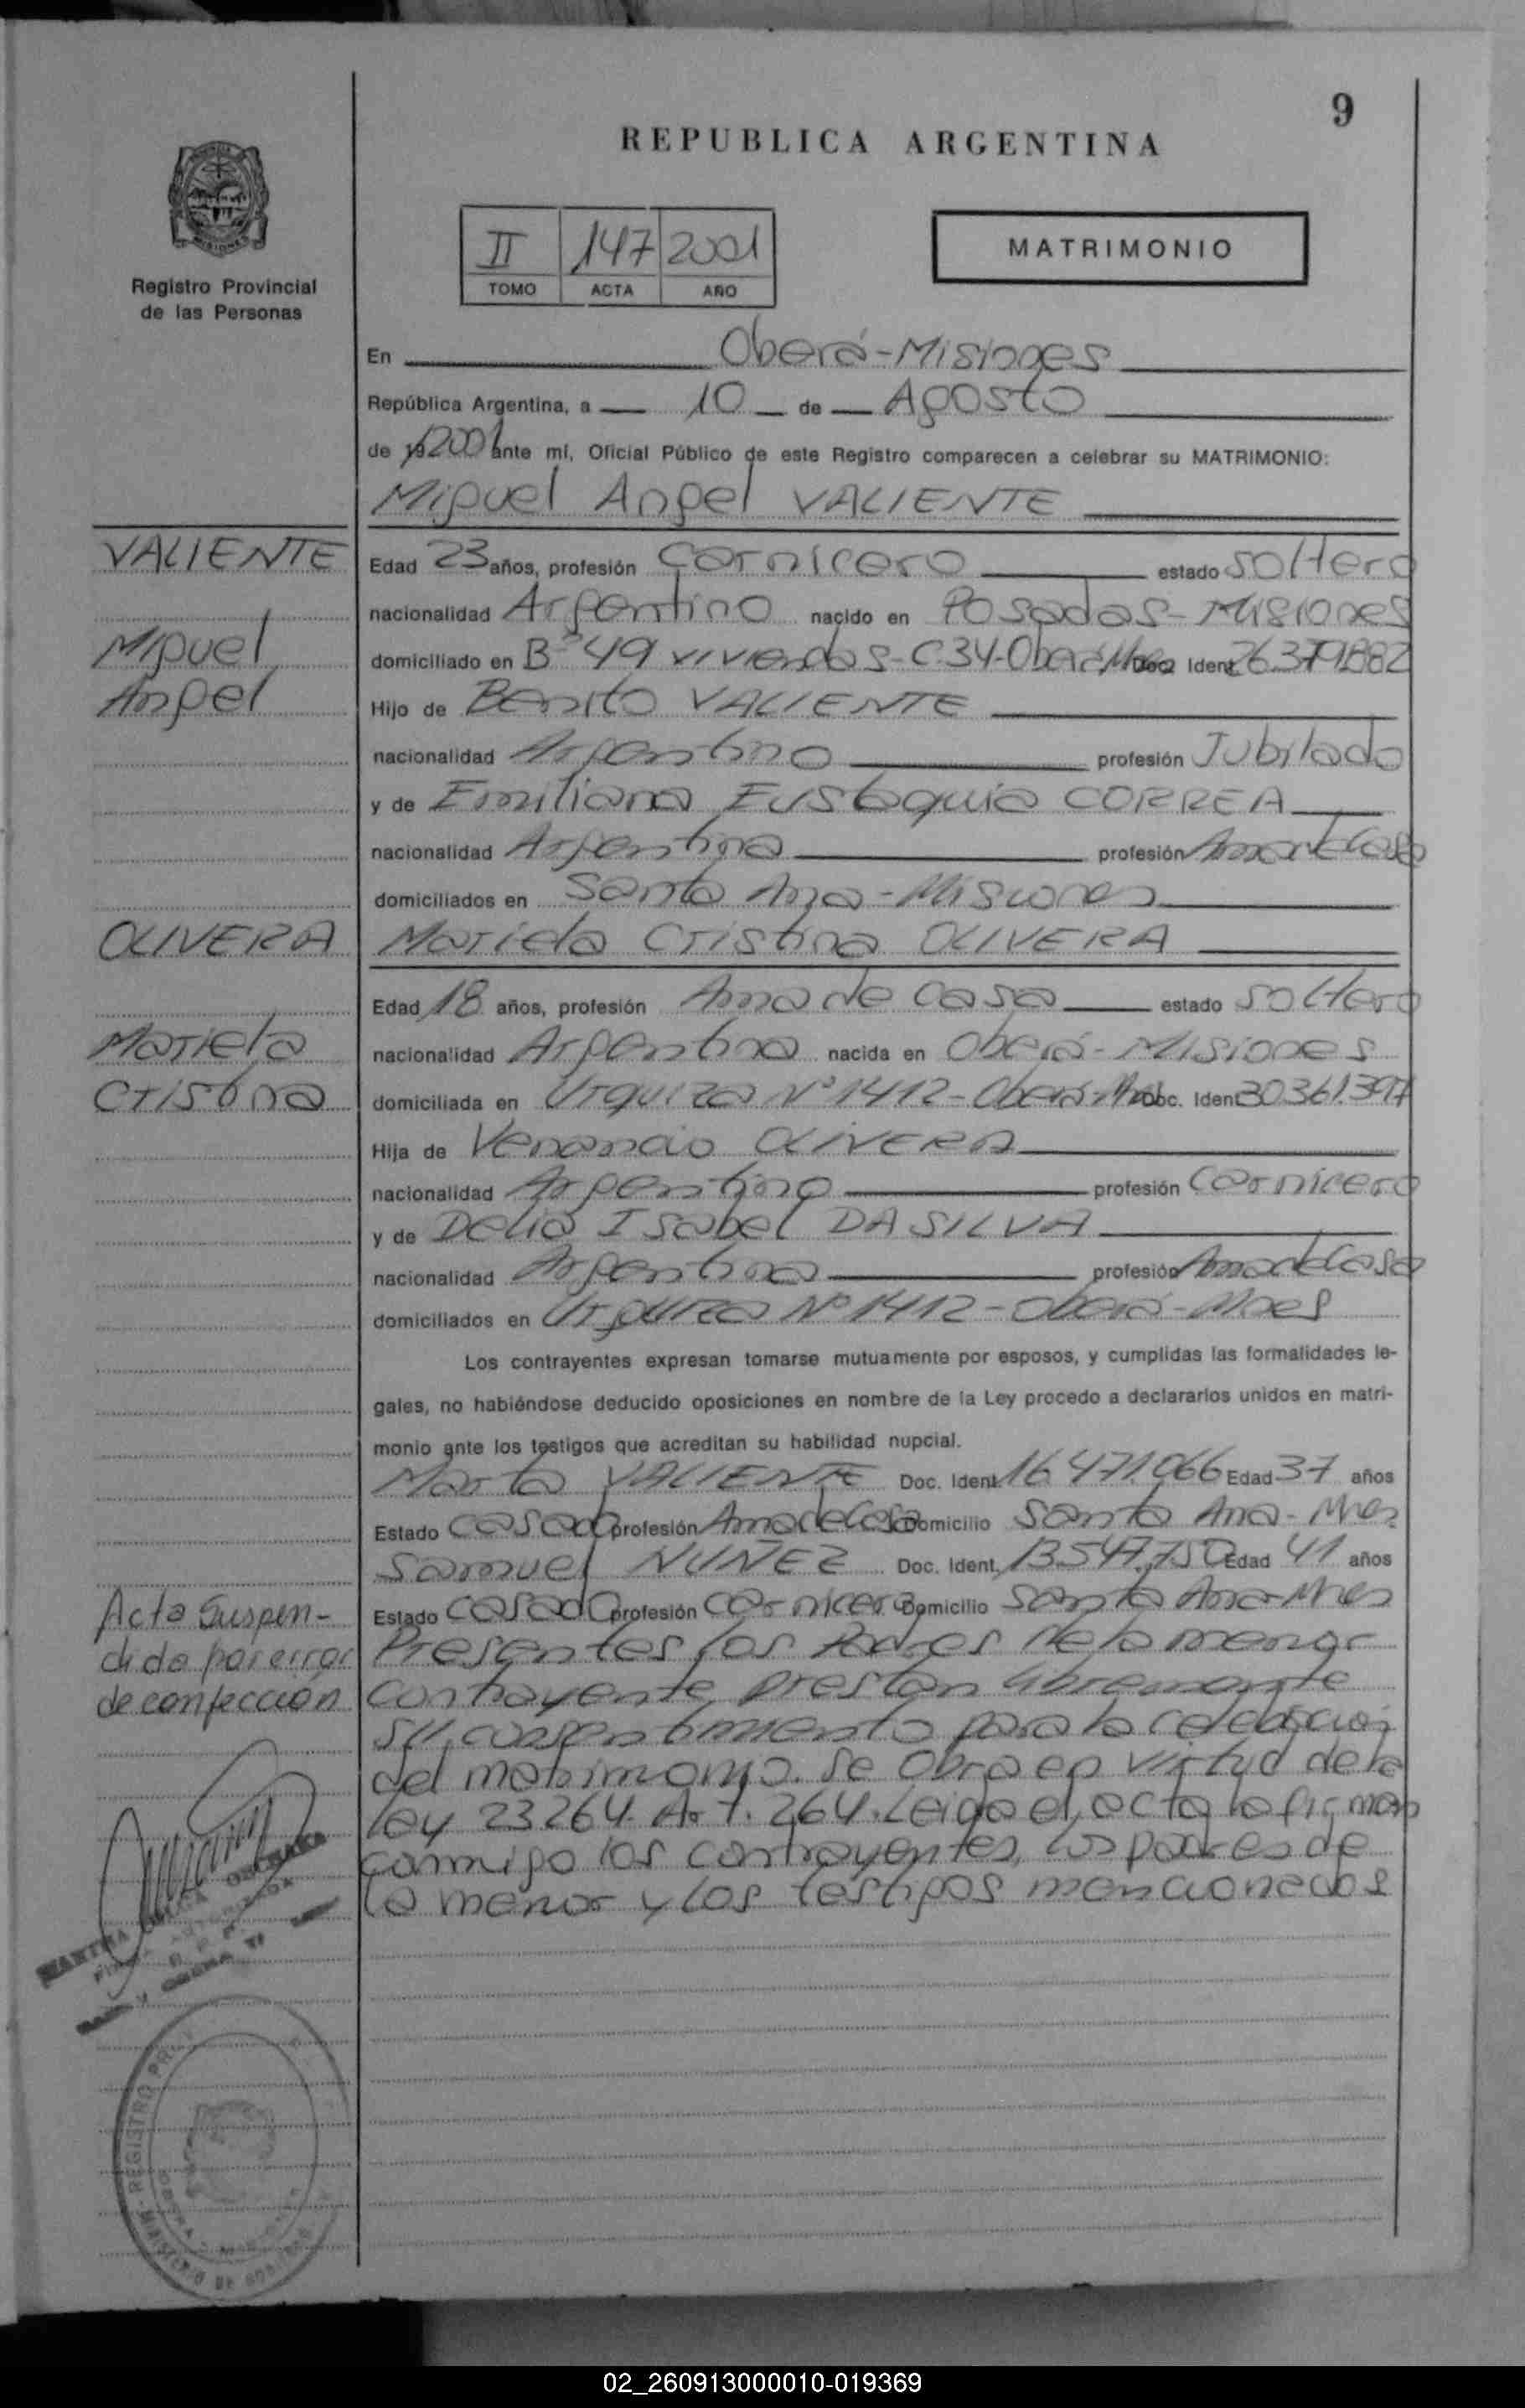 9
REPUBLICA ARGENTINA
Registro Provincial
de las Personas
II 147 2001
TOMO ACTA AÑO
MATRIMONIO
En Oberá-Misiones
República Argentina, a 10 de Agosto
de 19 2001 ante mí, Oficial Público de este Registro comparecen a celebrar su MATRIMONIO:
Miguel Angel VALIENTE
VALIENTE
Miguel
Angel
Edad 23 años, profesión Carnicero estado soltero
nacionalidad Argentino nacido en Posadas-Misiones
domiciliado en B° 49 viviendas-C.34-Oberá Doc. Ident.
Hijo de Benito VALIENTE
nacionalidad Argentino profesión Jubilado
y de Emiliana Eustaquia CORREA
nacionalidad Argentina profesión Ama de Casa
domiciliados en Santa Ana-Misiones
OLIVERA
Mariela
Cristina
Mariela Cristina OLIVERA
Edad 18 años, profesión Ama de casa estado soltera
nacionalidad Argentina nacida en Oberá-Misiones
domiciliada en Urquiza N° 1412-Oberá-Mnes Doc. Ident. 30.361.397
Hija de Venancio OLIVERA
nacionalidad Argentino profesión Carnicero
y de Delia Isabel DA SILVA
nacionalidad Argentina profesión Ama de Casa
domiciliados en Urquiza N° 1412-Oberá-Mnes
Los contrayentes expresan tomarse mutuamente por esposos, y cumplidas las formalidades le-
gales, no habiéndose deducido oposiciones en nombre de la Ley procedo a declararlos unidos en matri-
monio ante los testigos que acreditan su habilidad nupcial.
Marta VALIENTE Doc. Ident. 16.471.066 Edad 37 años
Estado Casada profesión Ama de Casa Domicilio Santa Ana-Mnes
Samuel NUÑEZ Doc. Ident. 13.547.750 Edad 41 años
Estado Casado profesión Carnicero Domicilio Santa Ana-Mnes
Acta Suspen-
dida por error
de confección
Presentes los Padres de la menor
contrayente prestan libremente
su consentimiento para la celebración
del matrimonio. Se obra en virtud de la
ley 23264. Art. 264. Leida el acta la firman
conmigo los contrayentes, los padres de
la menor y los testigos mencionados
MARTHA
REGISTRO
MINISTERIO DE
02_260913000010-019369